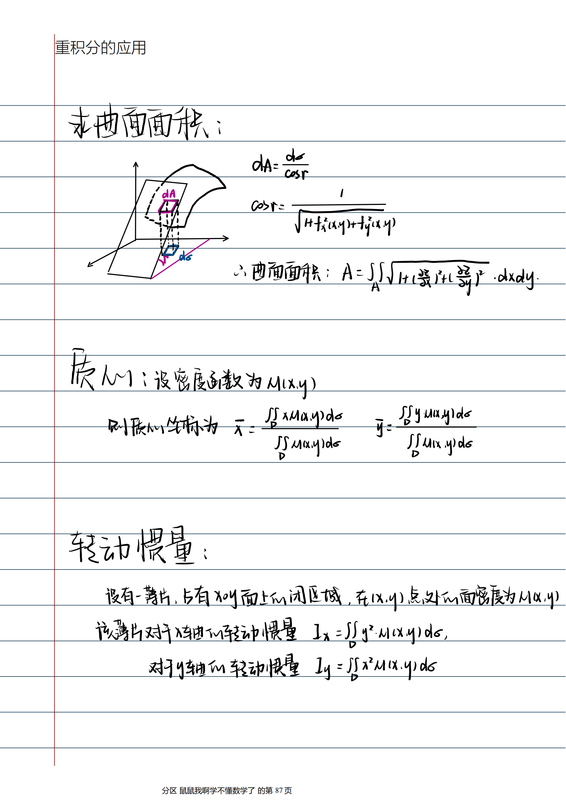 重积分的应用
求曲面面积：
dA = dσ/cosr
dA
cosr = 1/√(1+f_x²(x,y)+f_y²(x,y))
dσ
∴曲面面积：A = ∬_A √(1+(∂z/∂x)²+(∂z/∂y)²)·dxdy.
质心：设密度函数为 μ(x,y)
则质心坐标为 x̄ = ∬_D xμ(x,y)dσ / ∬_D μ(x,y)dσ ȳ = ∬_D yμ(x,y)dσ / ∬_D μ(x,y)dσ
转动惯量：
设有一薄片，占有xoy面上的闭区域，在(x,y)点处的面密度为μ(x,y)
该薄片对于x轴的转动惯量 I_x = ∬_D y²·μ(x,y)dσ,
对于y轴的转动惯量 I_y = ∬_D x²μ(x,y)dσ
分区 鼠鼠我啊学不懂数学了 的第 87 页